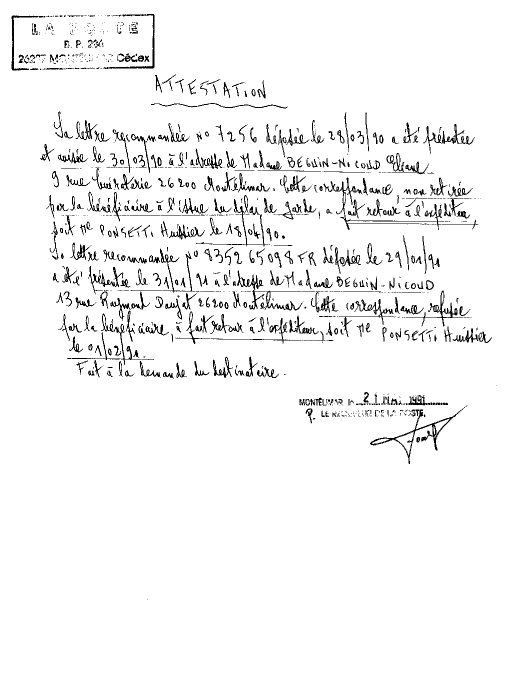 LA POSTE
B. P. 290
MONTÉLIMAR Cédex
ATTESTATION
La lettre recommandée N° 7256 déposée le 28/03/90 a été présentée
et avisée le 30/03/90 à l'adresse de Madame BEGUIN-NICOUD Eliane
9 rue 26200 Montélimar. Cette correspondance, non retirée
par la bénéficiaire à l'issue du délai de garde, a fait retour à l'expéditeur,
soit Me PONSETTI Huissier le 18/04/90.
La lettre recommandée N° 8352 65098 FR déposée le 29/01/91
a été présentée le 31/01/91 à l'adresse de Madame BEGUIN-NICOUD
13 rue Raymont Daujat 26200 Montélimar. Cette correspondance, refusée
par la bénéficiaire, à fait retour à l'expéditeur, soit Me PONSETTI Huissier
le 01/02/91.
Fait à la demande du destinataire.
MONTÉLIMAR le 21 MAI 1991
P. LE RECEVEUR DE LA POSTE,